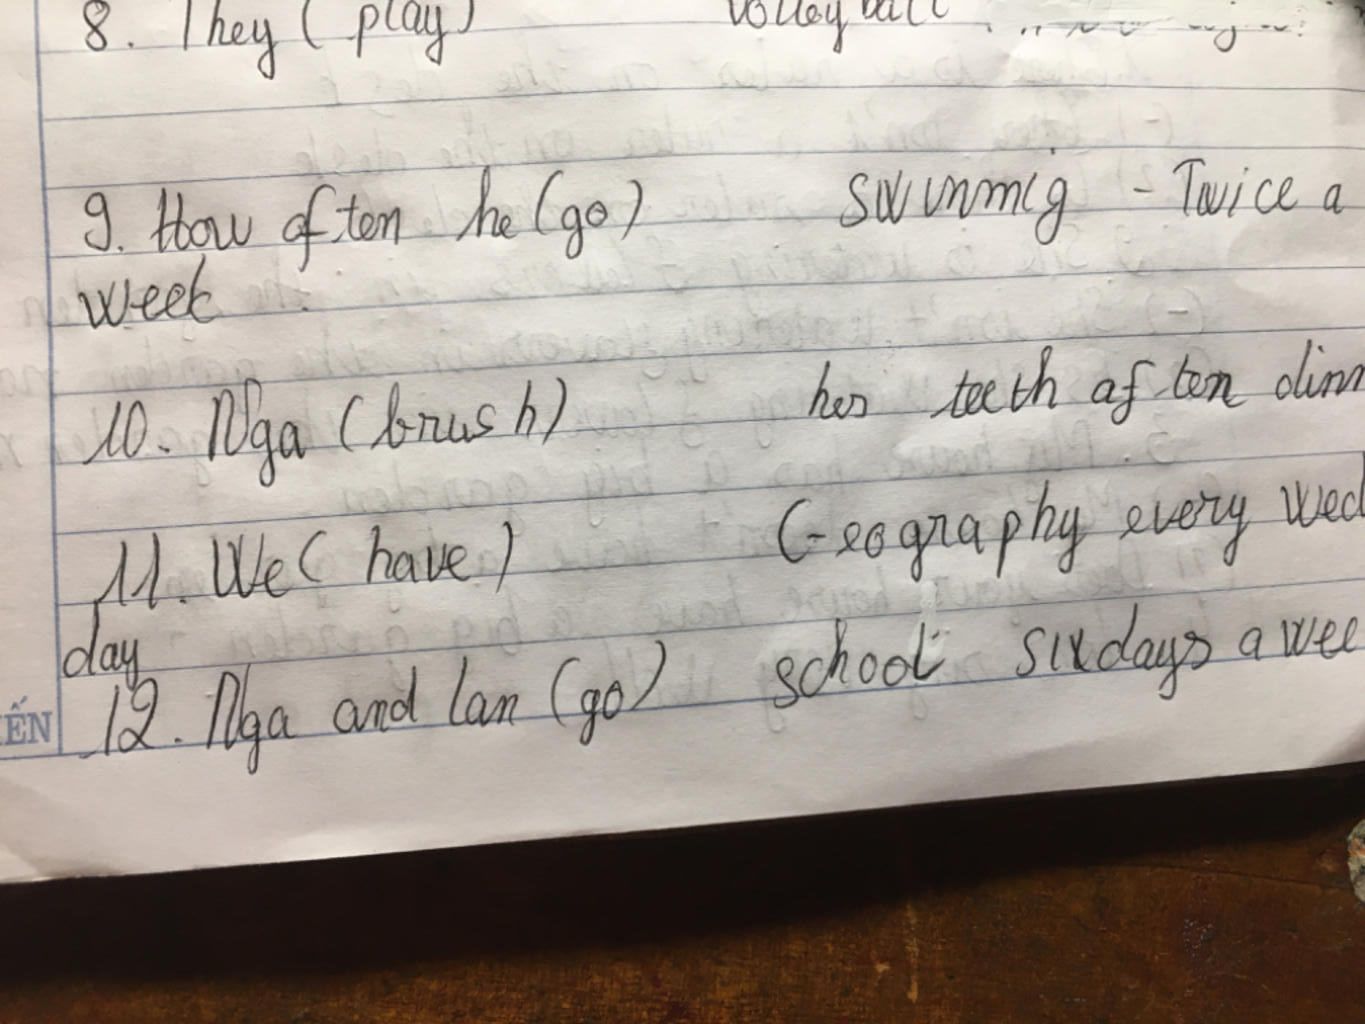 8. They ( play) volleyball
9. How often he (go) swunmig - Twice a
week
10. Nga (brush) her teeth after dinn
11. We ( have ) Geography every Wed
day
12. Nga and Lan (go) school six days a wee
ẾN